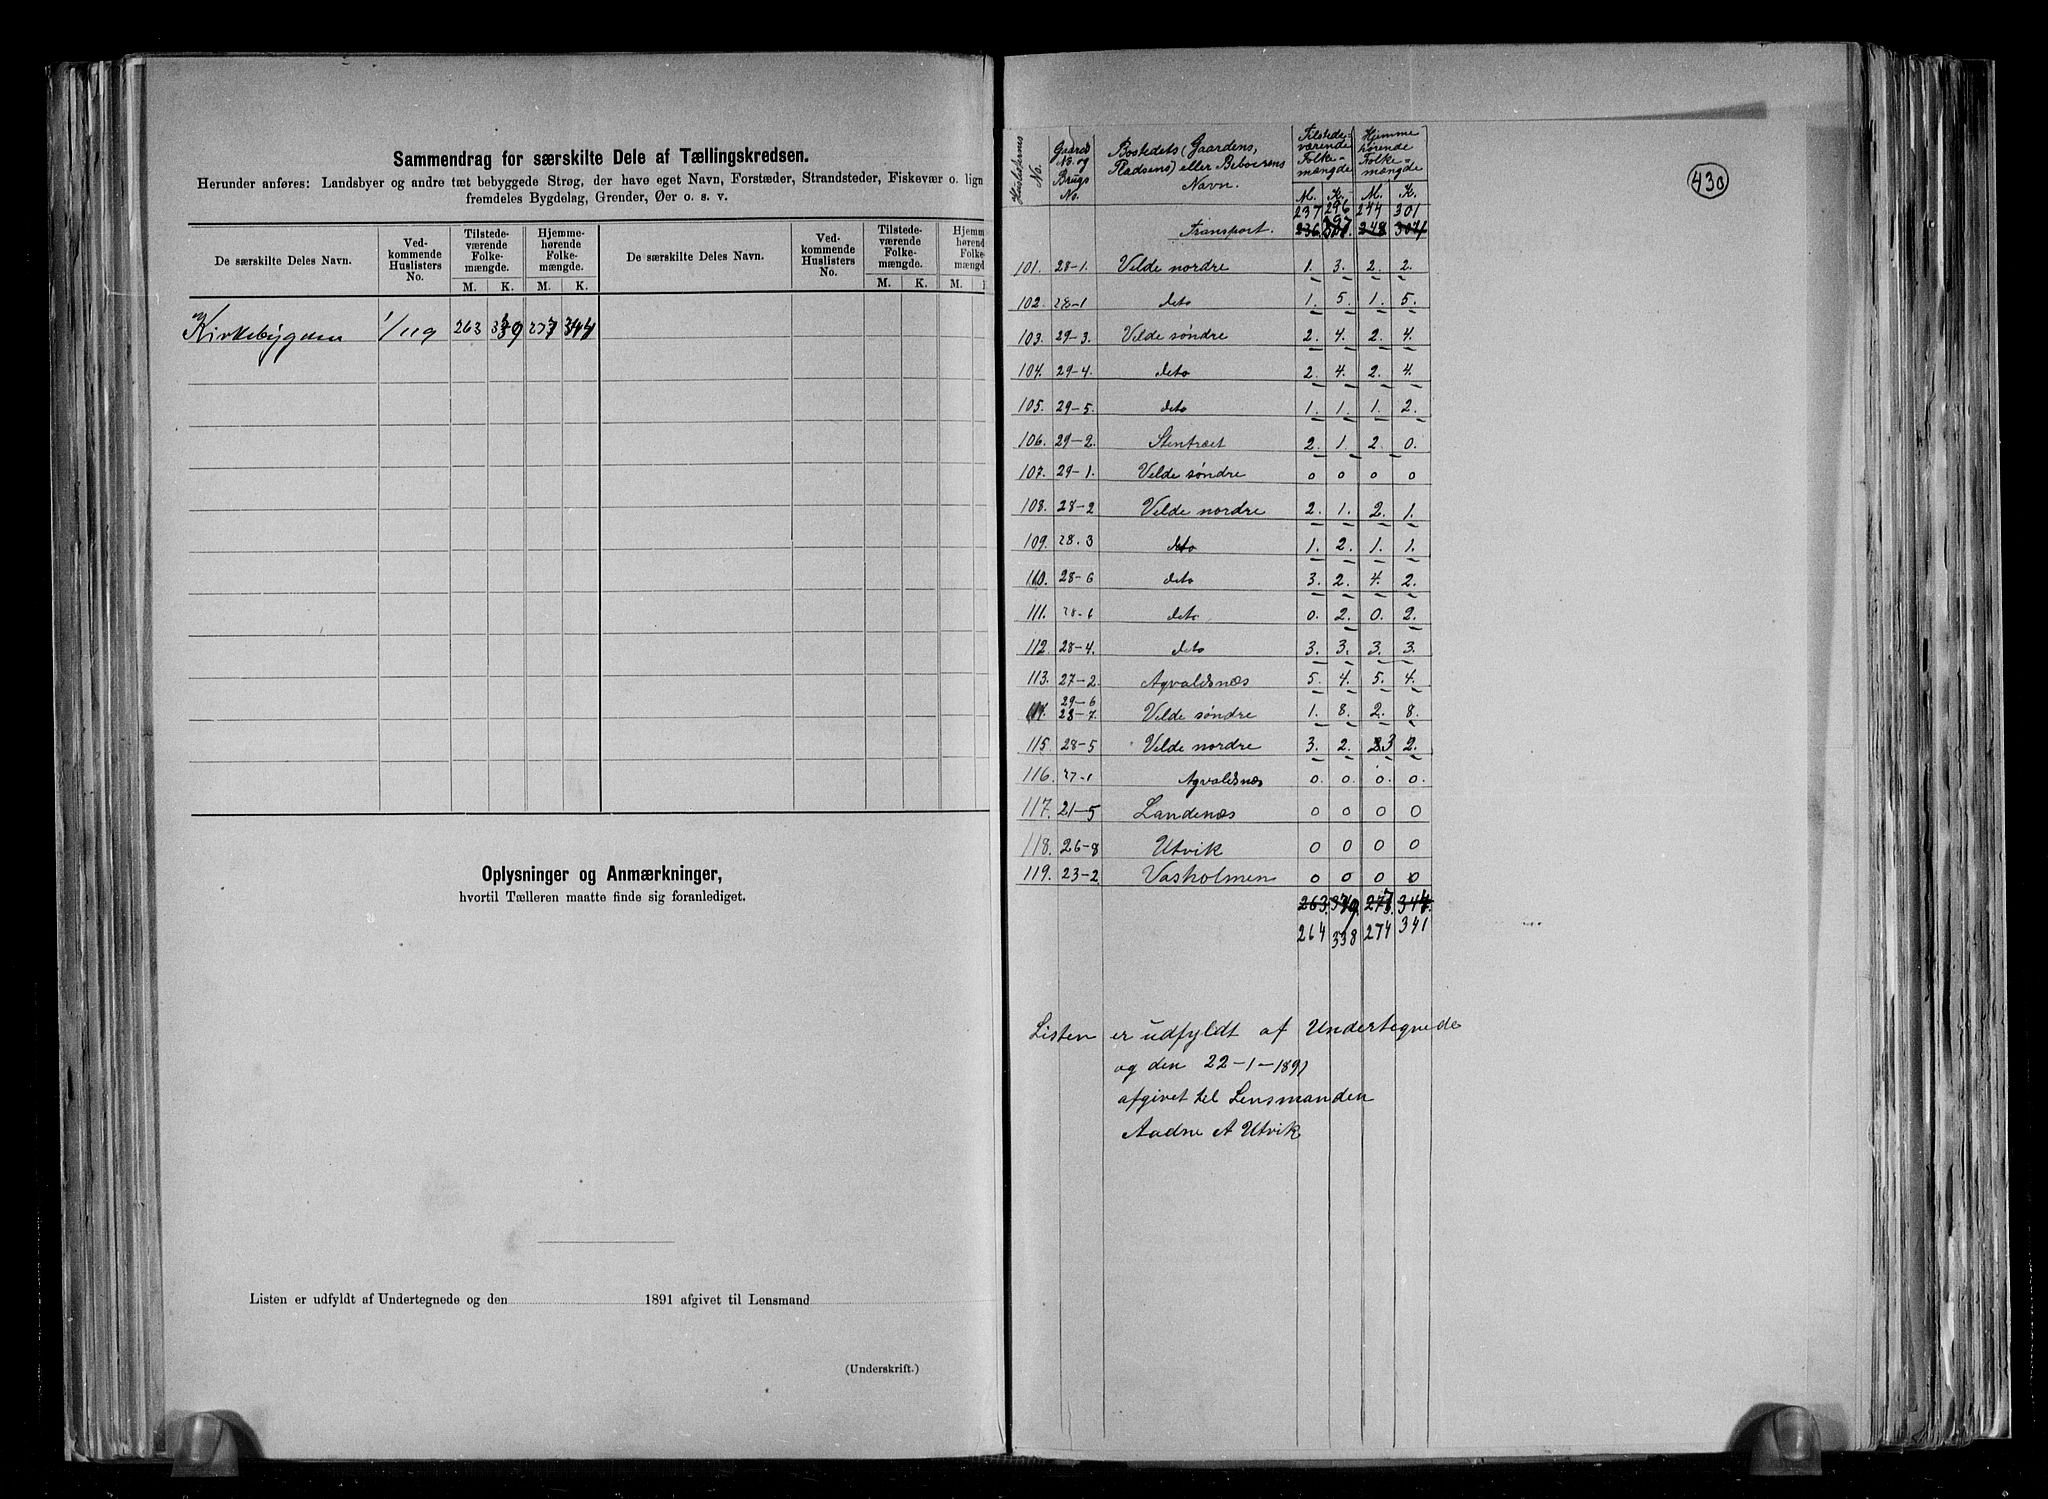 Sammendrag for særskilte Dele af Tællingskredsen.
Herunder anføres: Landsbyer og andre tæt bebyggede Strøg, der have eget Navn, Forstæder, Strandsteder, Fiskevær o. lign
fremdeles Bygdelag, Grender, Øer o. s. v.
De særskilte Deles Navn. Ved-kommende Huslisters No. Tilstede-værende Folke-mængde. Hjemme-hørende Folke-mængde. De særskilte Deles Navn. Ved-kommende Huslisters No. Tilstede-værende Folke-mængde. Hjemm hørend Folke mængd
M. K. M. K. M. K. M.
Kirkebygden 1/119 263 344
Oplysninger og Anmærkninger,
hvortil Tælleren maatte finde sig foranlediget.
Listen er udfyldt af Undertegnede og den 1891 afgivet til Lensmand
(Underskrift.)
430
Huslisternes No. Gaards No. og Brugs No. Bostedets (Gaardens, Pladsens) eller Beboerens Navn. Tilstede-værende Folke-mængde Hjemme hørende Folke-mængde
M. K. M. K.
237 296 244 301
Transport. 236
101. 28-1. Velde nordre 1. 3. 2. 2.
102. 28-1 deto 1. 5. 1. 5.
103. 29-3. Velde søndre 2. 4. 2. 4.
104. 29-4. deto 2. 4. 2. 4.
105. 29-5. deto 1. 1. 1. 2.
106. 29-2. Stentræet 2. 1. 2. 0.
107. 29-1. Velde søndre 0 0 0 0
108. 28-2 Velde nordre 2. 1. 2. 1.
109. 28.3 deto 1. 2. 1. 1.
110. 28-6 deto 3. 2. 4. 2.
111. 28-6 deto 0. 2. 0. 2.
112 28-4. deto 3. 3. 3. 3.
113. 27-2. Agvaldsnæs 5. 4. 5. 4.
29-6
114. 28-7. Velde søndre 1. 8. 2. 8.
115. 28-5 Velde nordre 3. 2. 3 2.
116. 27-1 Agvaldsnæs 0. 0. 0. 0.
117. 21-5 Landenæs 0 0 0 0
118. 26-8 Utvik 0 0 0 0
119. 23-2 Vasholmen 0 0 0 0
263.
264 338 274 341
Listen er udfyldt af Undertegnede
og den 22-1-1891
afgivet tel Lensmanden
Aadne A Utvik